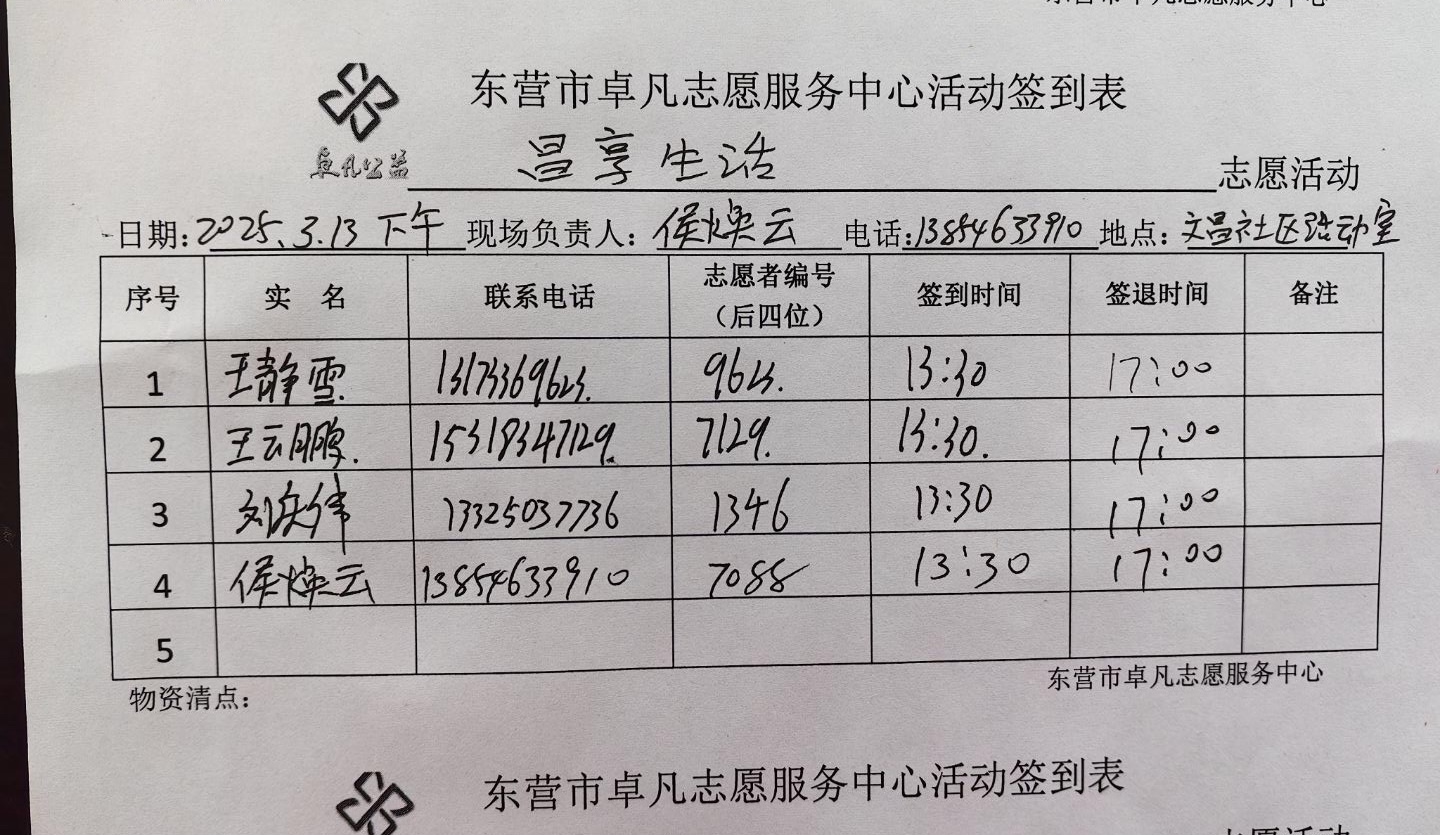 东营市卓凡志愿服务中心
东营市卓凡志愿服务中心活动签到表
卓凡公益
昌享生活 志愿活动
日期:2025.3.13 下午 现场负责人:侯焕云 电话:13854633910 地点:文昌社区活动室
序号 实 名 联系电话 志愿者编号(后四位) 签到时间 签退时间 备注
1 王静雪 13173369623. 9623. 13:30 17:00
2 王云鹏. 15318347129. 7129. 13:30. 17:00
3 刘庆伟 13325037736 1346 13:30 17:00
4 侯焕云 13854633910 7088 13:30 17:00
5
物资清点: 东营市卓凡志愿服务中心
东营市卓凡志愿服务中心活动签到表
志愿活动